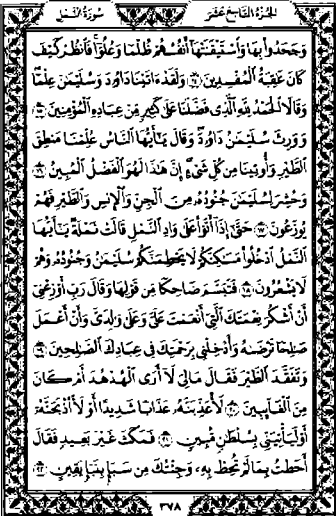 الجزء التاسع عشر
سورة النمل
وَجَحَدُوا۟ بِهَا وَٱسْتَيْقَنَتْهَآ أَنفُسُهُمْ ظُلْمًا وَعُلُوًّا فَٱنظُرْ كَيْفَ
كَانَ عَٰقِبَةُ ٱلْمُفْسِدِينَ ١٤ وَلَقَدْ ءَاتَيْنَا دَاوُۥدَ وَسُلَيْمَٰنَ عِلْمًا
وَقَالَا ٱلْحَمْدُ لِلَّهِ ٱلَّذِى فَضَّلَنَا عَلَىٰ كَثِيرٍ مِّنْ عِبَادِهِ ٱلْمُؤْمِنِينَ ١٥
وَوَرِثَ سُلَيْمَٰنُ دَاوُۥدَ وَقَالَ يَٰٓأَيُّهَا ٱلنَّاسُ عُلِّمْنَا مَنطِقَ
ٱلطَّيْرِ وَأُوتِينَا مِن كُلِّ شَىْءٍ إِنَّ هَٰذَا لَهُوَ ٱلْفَضْلُ ٱلْمُبِينُ ١٦
وَحُشِرَ لِسُلَيْمَٰنَ جُنُودُهُۥ مِنَ ٱلْجِنِّ وَٱلْإِنسِ وَٱلطَّيْرِ فَهُمْ
يُوزَعُونَ ١٧ حَتَّىٰٓ إِذَآ أَتَوْا۟ عَلَىٰ وَادِ ٱلنَّمْلِ قَالَتْ نَمْلَةٌ يَٰٓأَيُّهَا
ٱلنَّمْلُ ٱدْخُلُوا۟ مَسَٰكِنَكُمْ لَا يَحْطِمَنَّكُمْ سُلَيْمَٰنُ وَجُنُودُهُۥ وَهُمْ
لَا يَشْعُرُونَ ١٨ فَتَبَسَّمَ ضَاحِكًا مِّن قَوْلِهَا وَقَالَ رَبِّ أَوْزِعْنِىٓ
أَنْ أَشْكُرَ نِعْمَتَكَ ٱلَّتِىٓ أَنْعَمْتَ عَلَىَّ وَعَلَىٰ وَٰلِدَىَّ وَأَنْ أَعْمَلَ
صَٰلِحًا تَرْضَىٰهُ وَأَدْخِلْنِى بِرَحْمَتِكَ فِى عِبَادِكَ ٱلصَّٰلِحِينَ ١٩
وَتَفَقَّدَ ٱلطَّيْرَ فَقَالَ مَالِىَ لَآ أَرَى ٱلْهُدْهُدَ أَمْ كَانَ
مِنَ ٱلْغَآئِبِينَ ٢٠ لَأُعَذِّبَنَّهُۥ عَذَابًا شَدِيدًا أَوْ لَأَا۟ذْبَحَنَّهُۥٓ
أَوْ لَيَأْتِيَنِّى بِسُلْطَٰنٍ مُّبِينٍ ٢١ فَمَكَثَ غَيْرَ بَعِيدٍ فَقَالَ
أَحَطتُ بِمَا لَمْ تُحِطْ بِهِۦ وَجِئْتُكَ مِن سَبَإٍۭ بِنَبَإٍ يَقِينٍ ٢٢
٣٧٨